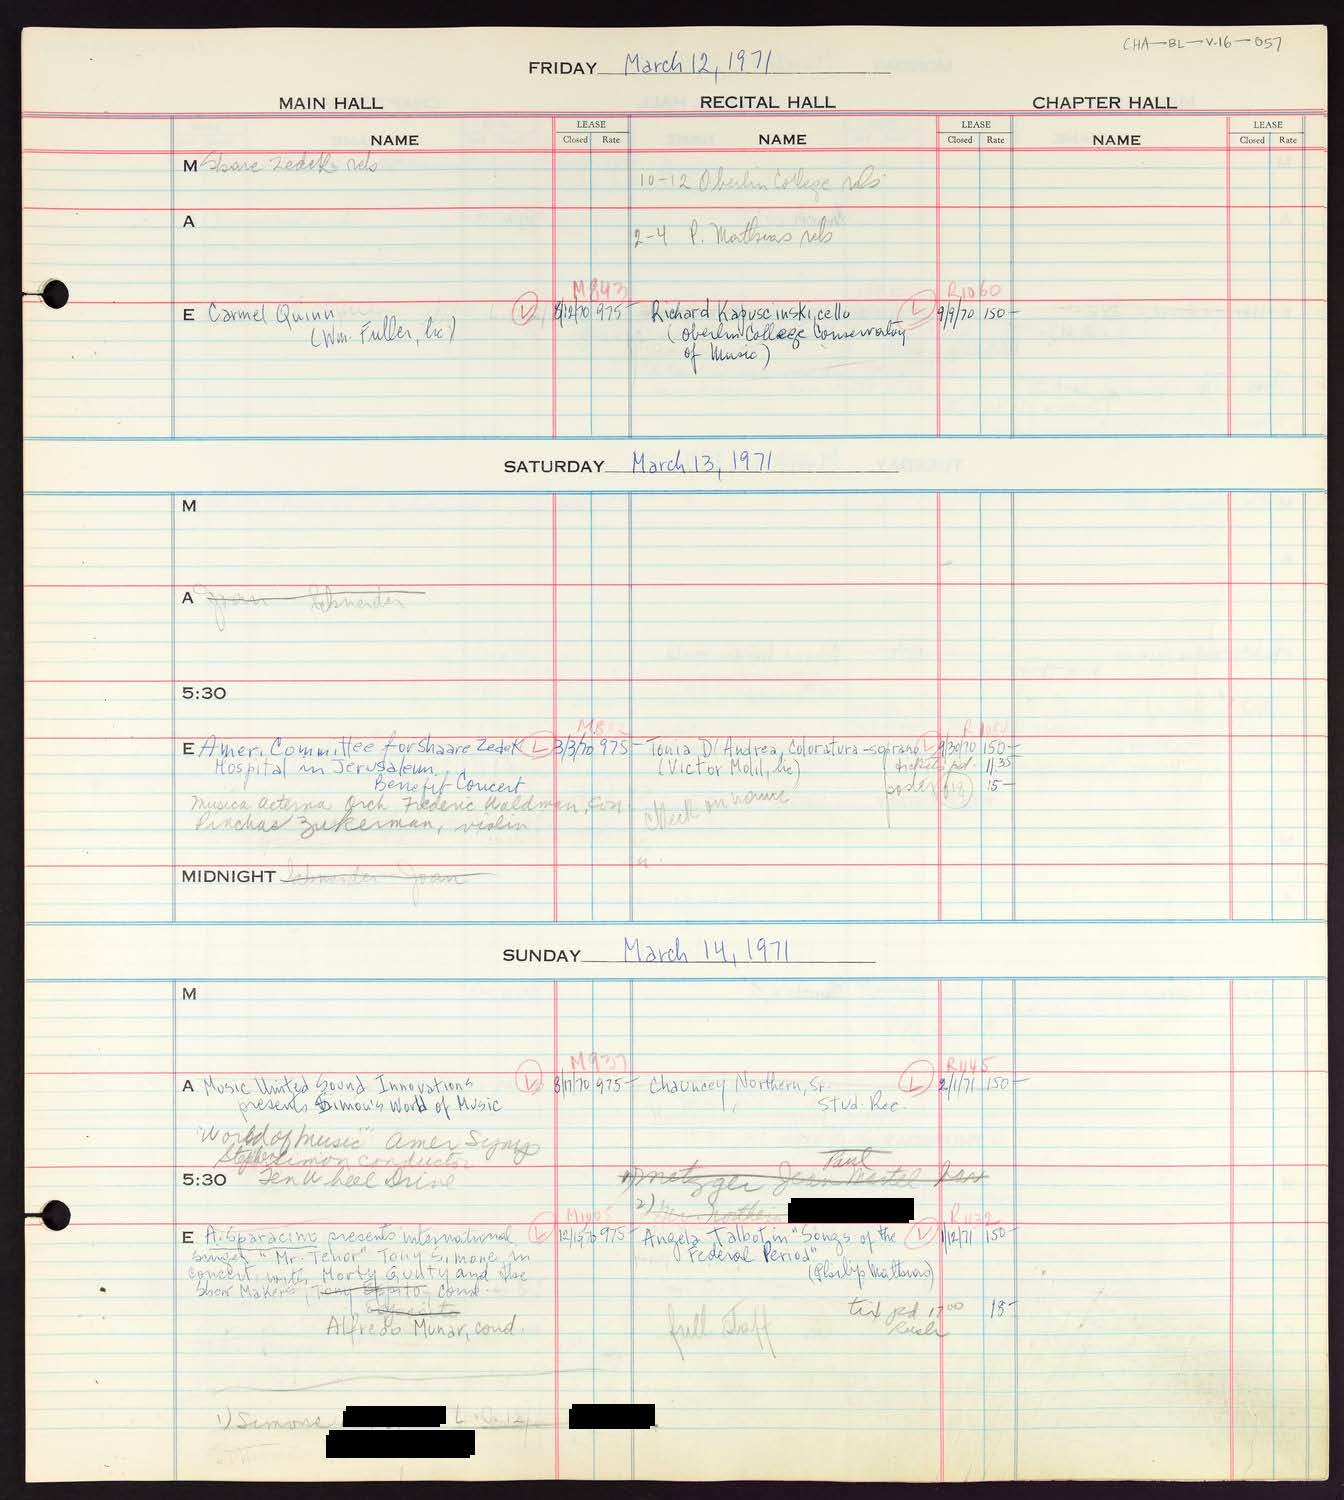 CHA-BL-V.16-057
FRIDAY March 12, 1971
MAIN HALL RECITAL HALL CHAPTER HALL
NAME LEASE Closed Rate NAME LEASE Closed Rate NAME LEASE Closed Rate
M Shaare Zedek rels
10-12 Oberlin College rels
A
2-4 P. Mathias rels
M943 R1060
E Carmel Quinn L 8/12/70 975- Richard Kapuscinski, cello L 9/9/70 150-
(Wm. Fuller, lic) (Oberlin College Conservatory
of Music)
SATURDAY March 13, 1971
M
A Joan Schneider
5:30
E Amer. Committee for Shaare Zedek L 3/3/70 975- Tonia D'Andrea, Coloratura-soprano L 9/30/70 150-
Hospital in Jerusalem (Victor Molil, lic) tickets pd. 11.35
Benefit Concert poster 15-
Musica Aeterna Orch Frederic Waldman, Con check on name
Pinchas Zukerman, violin
MIDNIGHT Schneider Joan
SUNDAY March 14, 1971
M
M937 R1145
A Music United Sound Innovations L 8/17/70 975- Chauncey Northern, Sr. L 2/1/71 150-
presents Simon's World of Music Stud. Rec.
"World of Music" Amer Symp
Stephen Simon conductor
Paul
5:30 Ten Wheel Drive 1) Metzger Jean Martel
2)
M1005 R1132
E A. Sparacino presents international L 12/15/70 975- Angela Talbot in "Songs of the L 1/12/71 150-
singer "Mr. Tenor" Tony Simone in Federal Period"
concert with Morty Gutty and the (Philip Mathias)
Show Makers, Tony Esposito cond.
Esposito tix pd 17.00 18-
Alfredo Munar, cond. full staff Rush
1) Simone